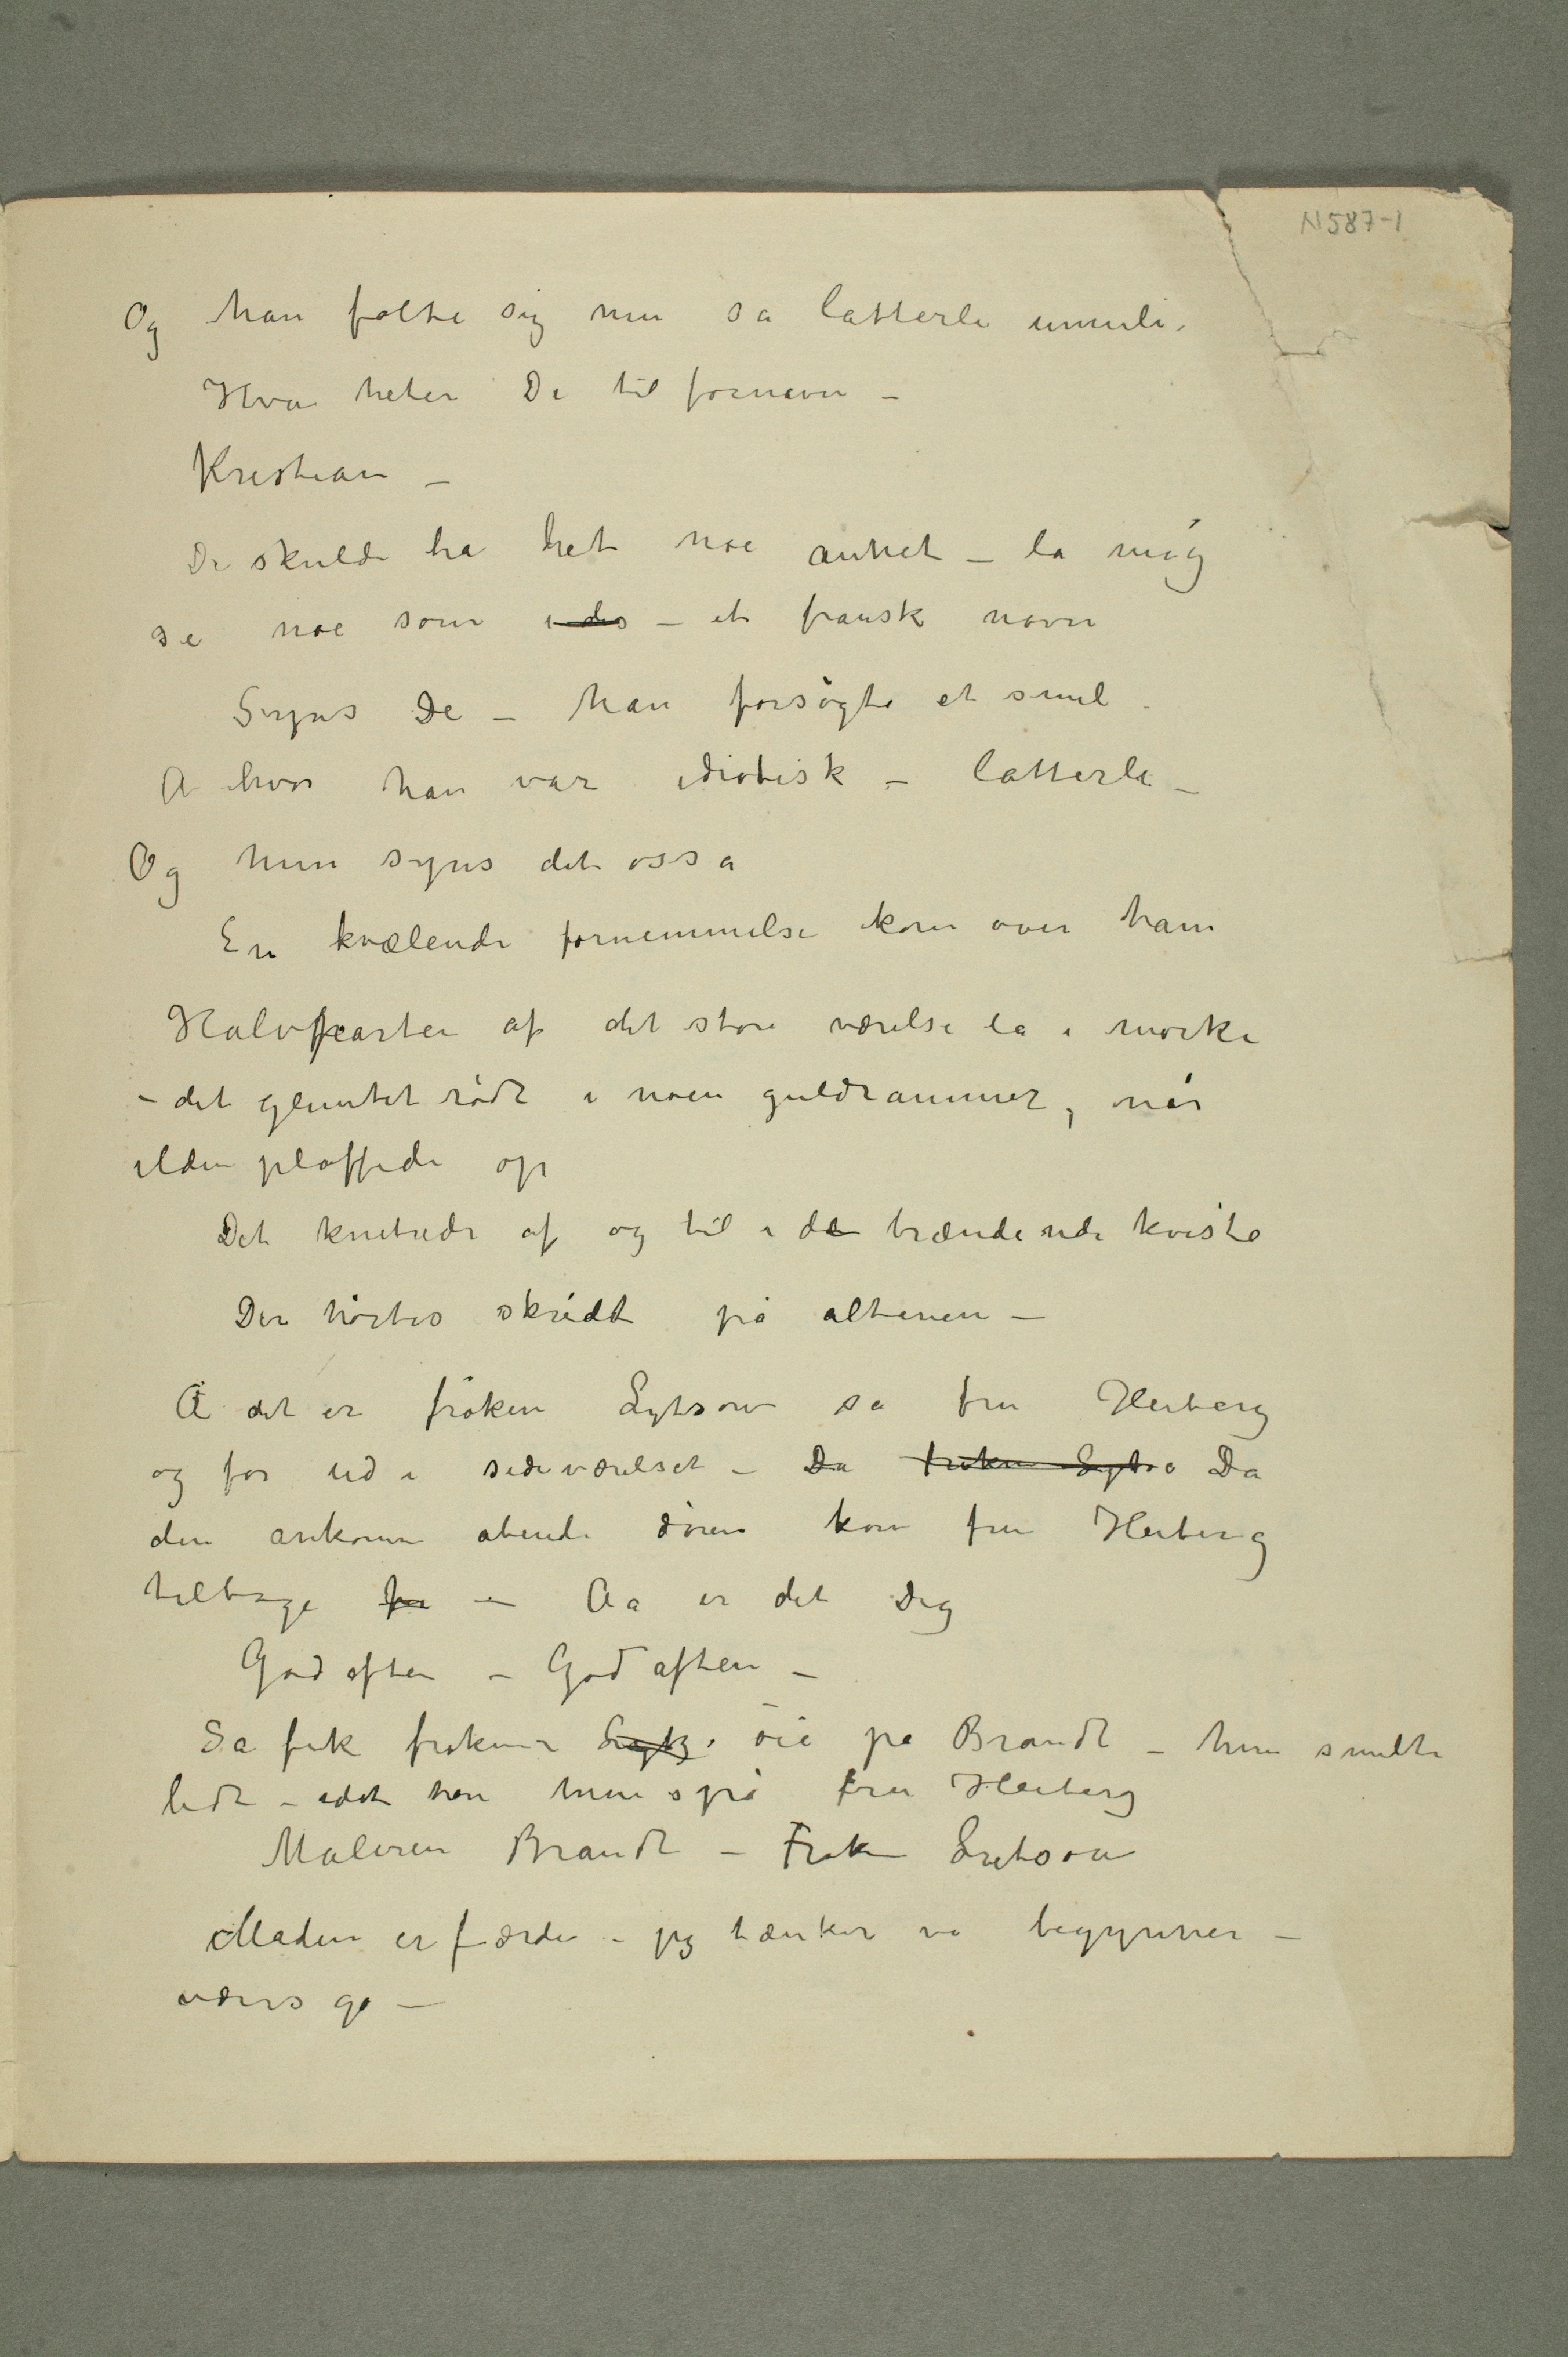 N587-1
Og han følte sig nu så latterli umuli.
Hva heter De til fornavn –
Kristian –
De skulde ha het noe annet – la mig
se noe som – et fransk navn
Synes De – han forsøgte et smil –
A hvor han var idiotisk – latterli –
Og hun synes det osså
En kvælende fornemmelse kom over ham
Halvparten af det store værelse lå i mørke
– det glimtet rødt i noen guldrammer, når
ilden ploffede op
Det knitrede af og til i de brændende kviste
Der hørtes skridt på altanen –
Å det er frøken Lytsow sa fru Heiberg
og for ud i sideværelset – Da frøken Lytso Da
den ankomne åbende døren kom fru Heiberg
tilbage – Aa er det Dig
God aften – God aften –
Så fik frøkenen øie på Brandt – hun smilte
lidt – idet hun så på fru Heiberg
Maleren Brandt – Frøken
Maden er færdi – jeg tænker vi begynner –
værs go –